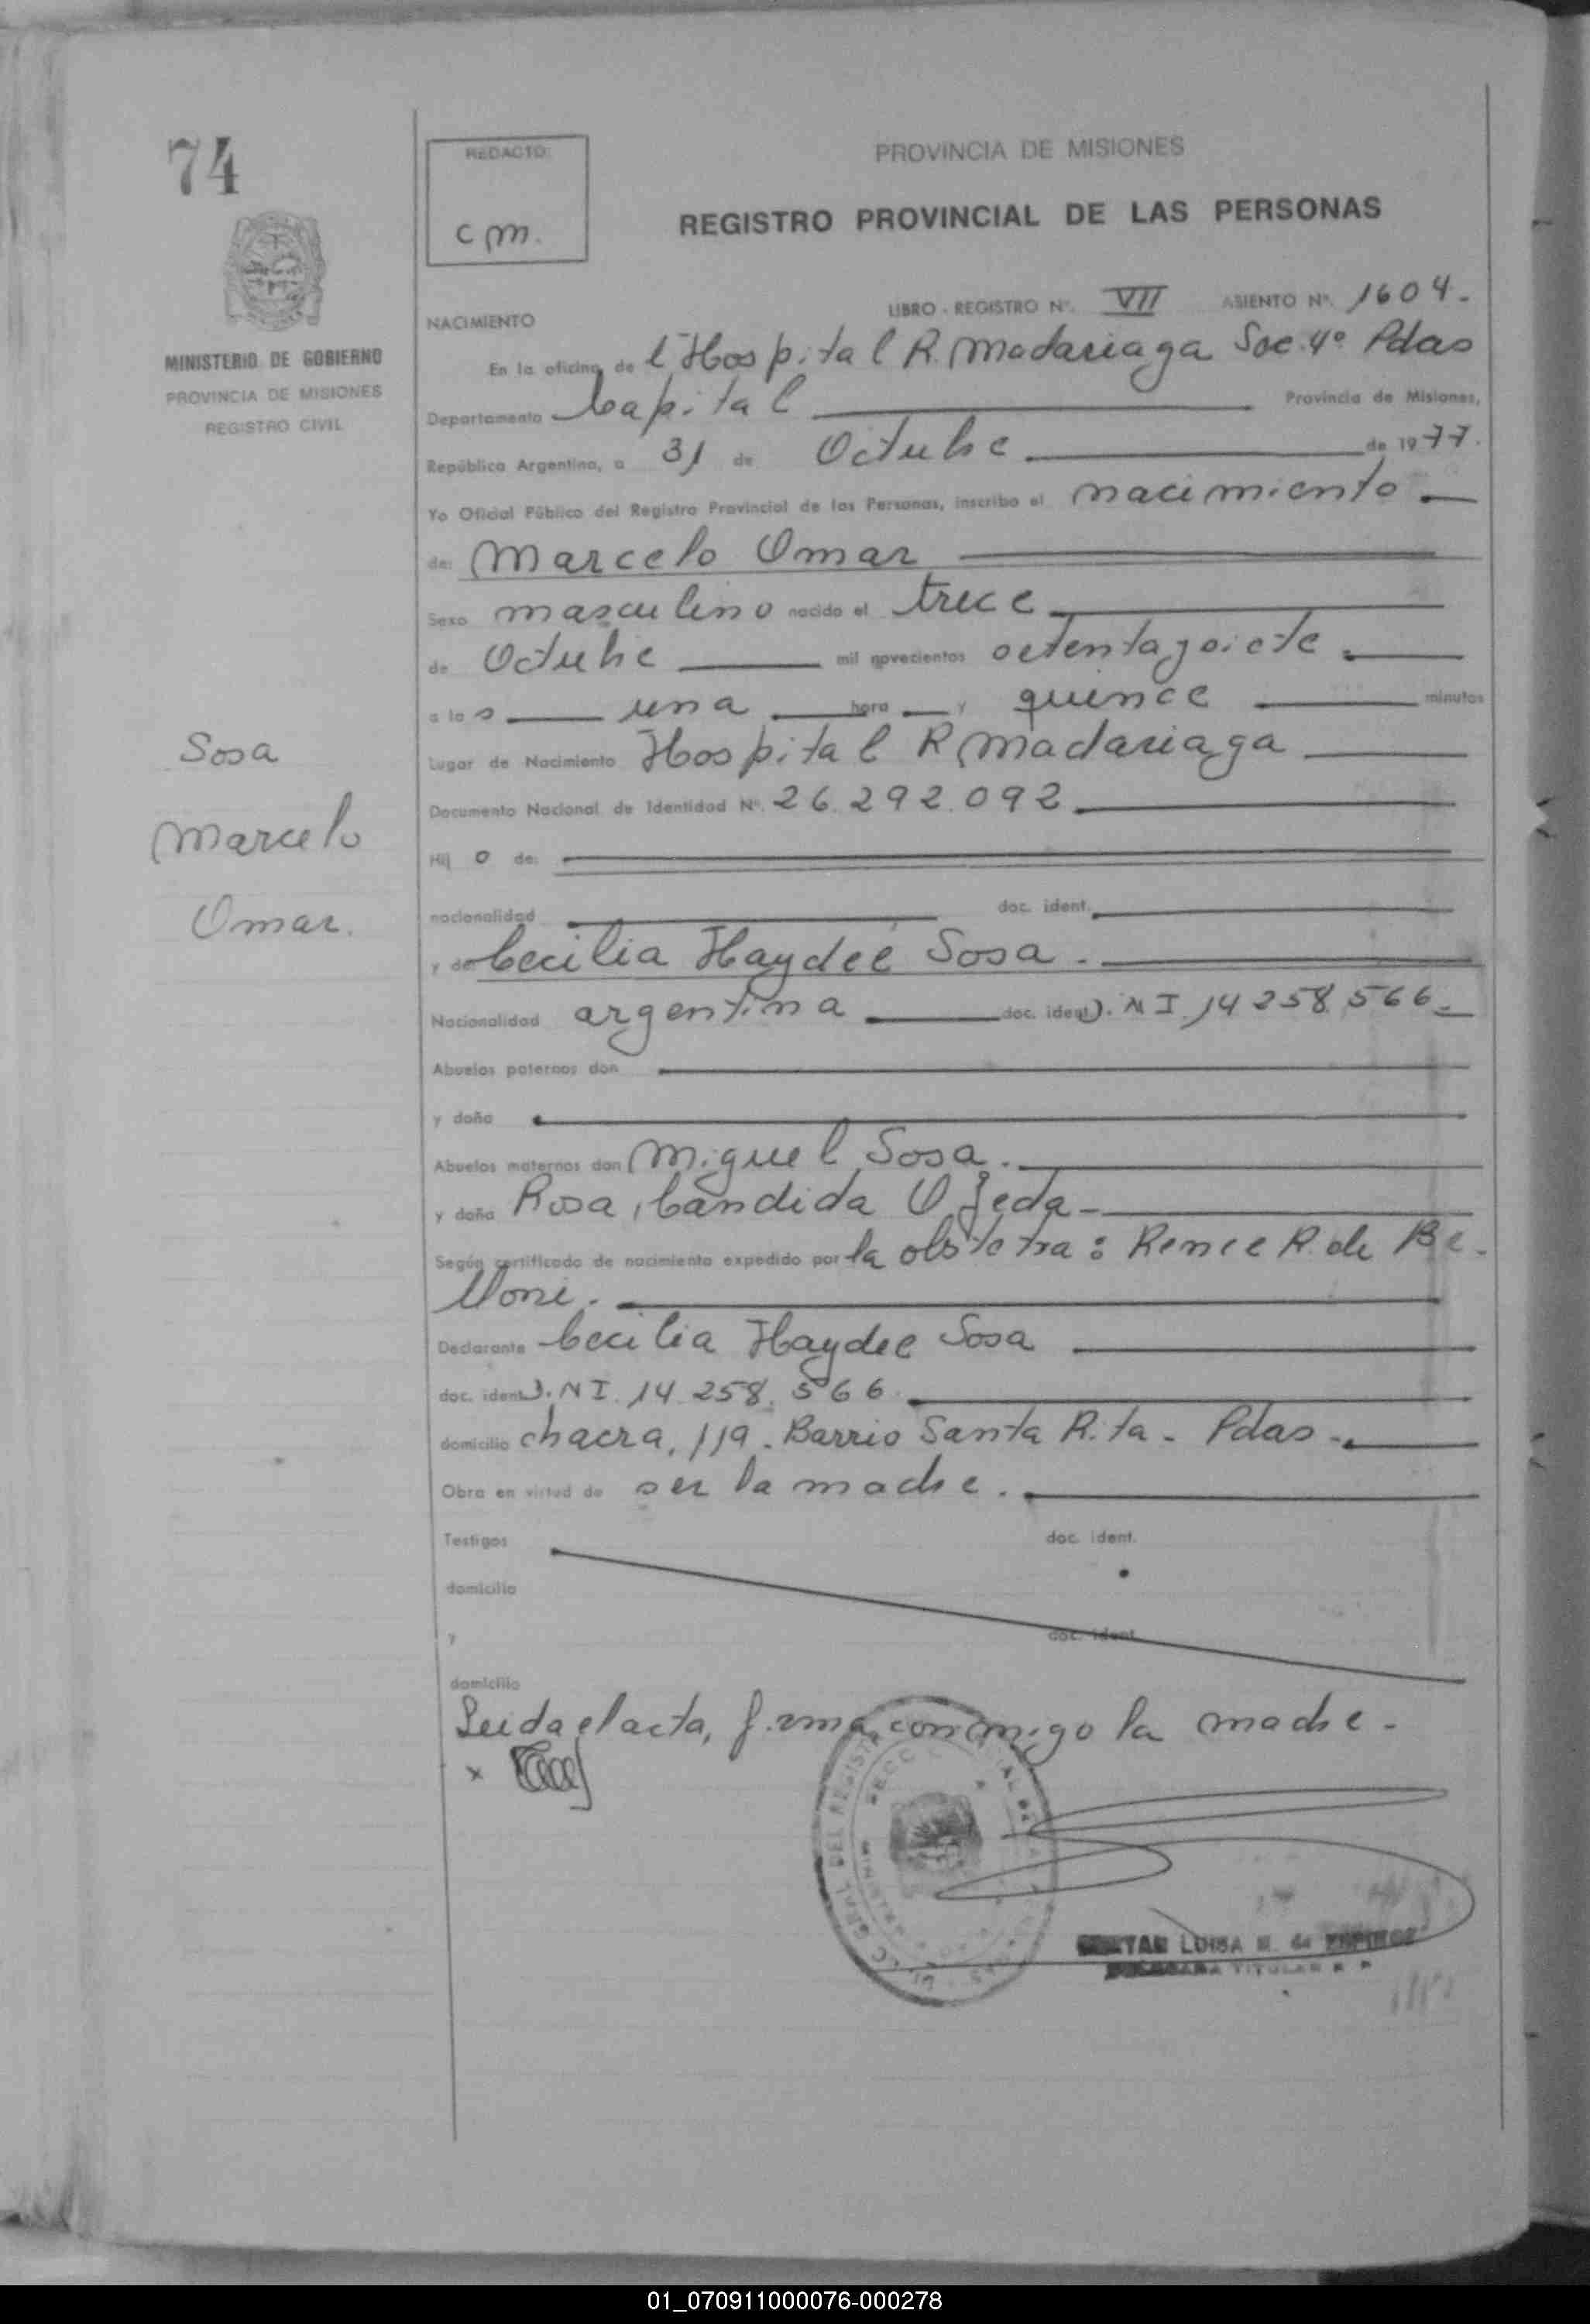 74
REDACTO:
c m.
PROVINCIA DE MISIONES
REGISTRO PROVINCIAL DE LAS PERSONAS
MINISTERIO DE GOBIERNO
PROVINCIA DE MISIONES
REGISTRO CIVIL
LIBRO - REGISTRO Nº. VII ASIENTO Nº. 1604.
NACIMIENTO
En la oficina de l Hospital R. Madariaga Sec. 4º Pdas
Departamento Capital Provincia de Misiones,
República Argentina, a 31 de Octubre de 1977.
Yo Oficial Público del Registro Provincial de las Personas, inscribo el nacimiento
de: Marcelo Omar
Sexo masculino nacido el trece
de Octubre mil novecientos setenta y siete
a las una hora y quince minutos
Lugar de Nacimiento Hospital R Madariaga
Documento Nacional de Identidad Nº. 26.292.092
Hij o de:
nacionalidad doc. ident.
y de Cecilia Haydeé Sosa.
Nacionalidad argentina doc. ident. D.N I. 14 258.566.
Abuelos paternos don
y doña
Abuelos maternos don Miguel Sosa.
y doña Rosa Candida Ojeda
Según certificado de nacimiento expedido por la obstetra: Renee R. de Be
lloni.
Declarante Cecilia Haydee Sosa
doc. ident. D.N I. 14 258. 566
domicilio chacra. 119. Barrio Santa Rita - Pdas.
Obra en virtud de ser la madre.
Testigos doc. ident.
domicilio
y doc. ident.
domicilio
Leida el acta, firma conmigo la madre.
x
LUISA
TITULAR
Sosa
Marcelo
Omar.
01_070911000076-000278